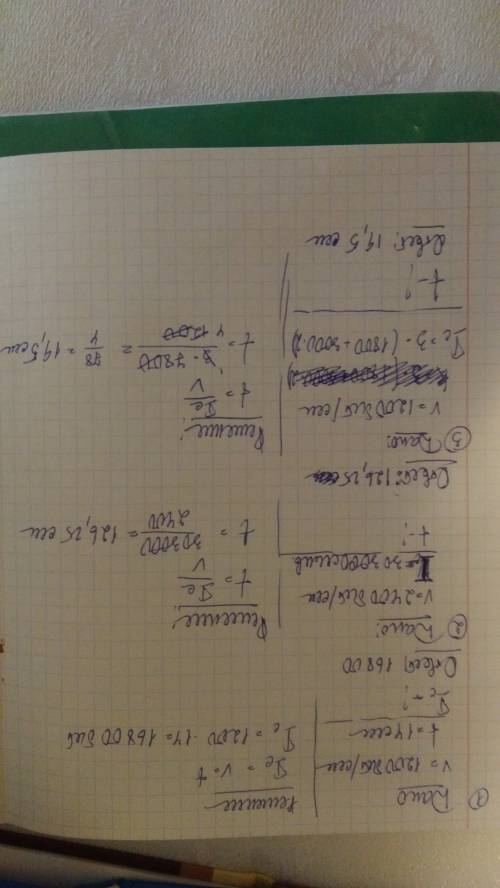 ① Дано
V = 1200 бит/сек
t = 14 сек
Ic - ?
Решение
Ic = V · t
Ic = 1200 · 14 = 16800 бит
Ответ: 16800
② Дано:
V = 2400 бит/сек
I = 303000 симв
t - ?
Решение:
t = Ic / V
t = 303000 / 2400 = 126,25 сек
Ответ: 126,25 сек
③ Дано:
V = 1200 бит/сек
Ic = 3 · (1800 + 3000 · 2)
t - ?
Решение:
t = Ic / V
= 78 / 4 = 19,5 сек
Ответ: 19,5 сек